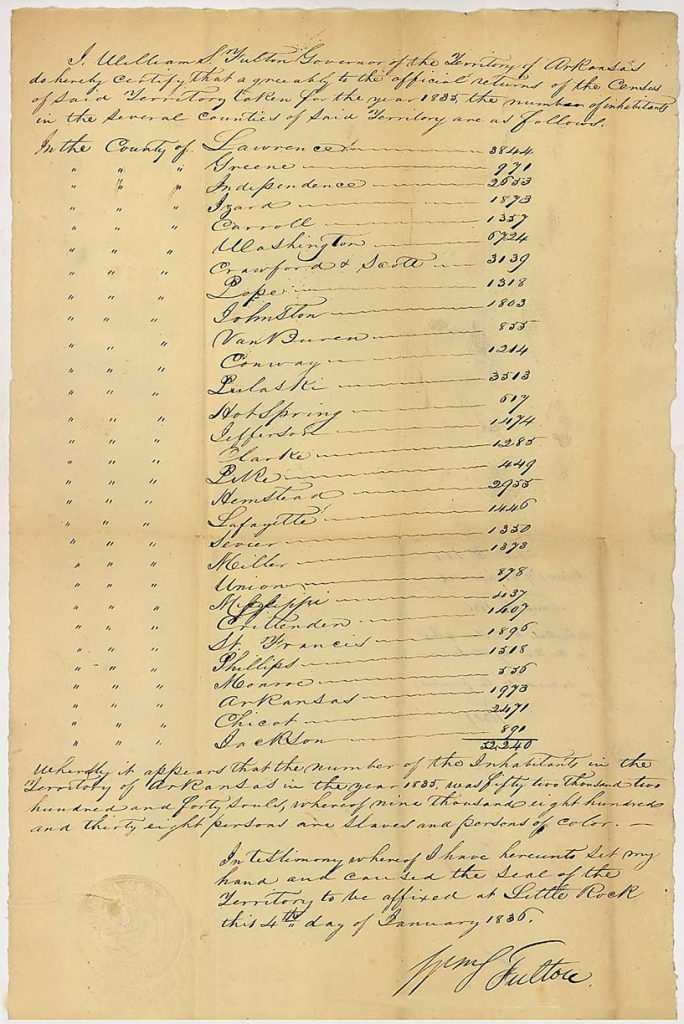 I, William S. Fulton Governor of the Territory of Arkansas
do hereby certify that agreeably to the official returns of the Census
of Said Territory taken for the year 1835, the number of inhabitants
in the Several Counties of Said Territory are as follows.
In the County of Lawrence 3844
" " " Greene 971
" " " Independence 2653
" " " Izard 1873
" " " Carroll 1357
" " " Washington 6724
" " " Crawford & Scott 3139
" " " Pope 1318
" " " Johnston 1803
" " " Van Buren 855
" " " Conway 1214
" " " Pulaski 3513
" " " Hot Spring 617
" " " Jefferson 1474
" " " Clarke 1285
" " " Pike 449
" " " Hemstead 2955
" " " Lafayette 1446
" " " Sevier 1350
" " " Miller 1373
" " " Union 878
" " " Mississippi 437
" " " Crittenden 1407
" " " St. Francis 1896
" " " Phillips 1518
" " " Monroe 556
" " " Arkansas 1973
" " " Chicot 2471
" " " Jackson 891
52,240
Whereby it appears that the number of the Inhabitants in the
Territory of Arkansas in the year 1835, was fifty two thousand two
hundred and forty Souls, whereof nine thousand eight hundred
and thirty eight persons are Slaves and persons of color. —
In testimony whereof I have hereunto Set my
hand and caused the Seal of the
Territory to be affixed at Little Rock
this 4th day of January 1836.
Wm S Fulton